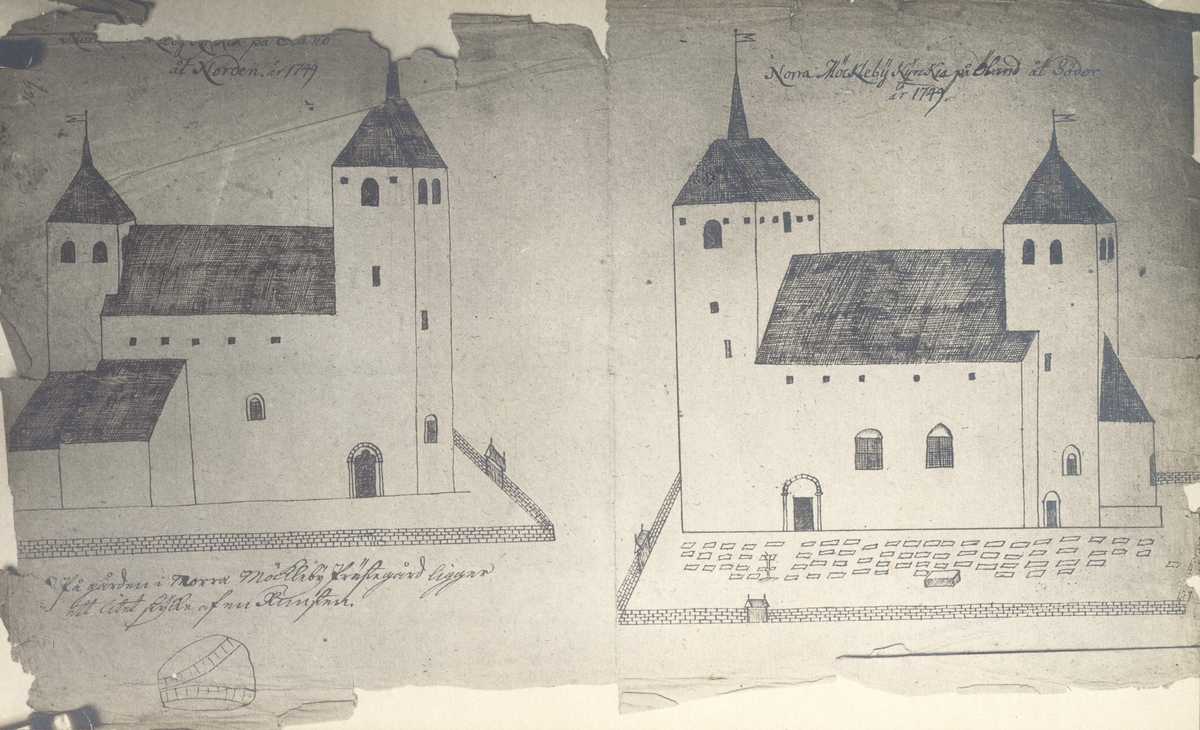 Kyrckia på Öland
åt Norden. år 1749
Norra Möckleby Kyrckia på Öland åt Söder
år 1749.
På gården i Norra Möckleby Prästegård ligger
ett litet stycke af en Runsten.